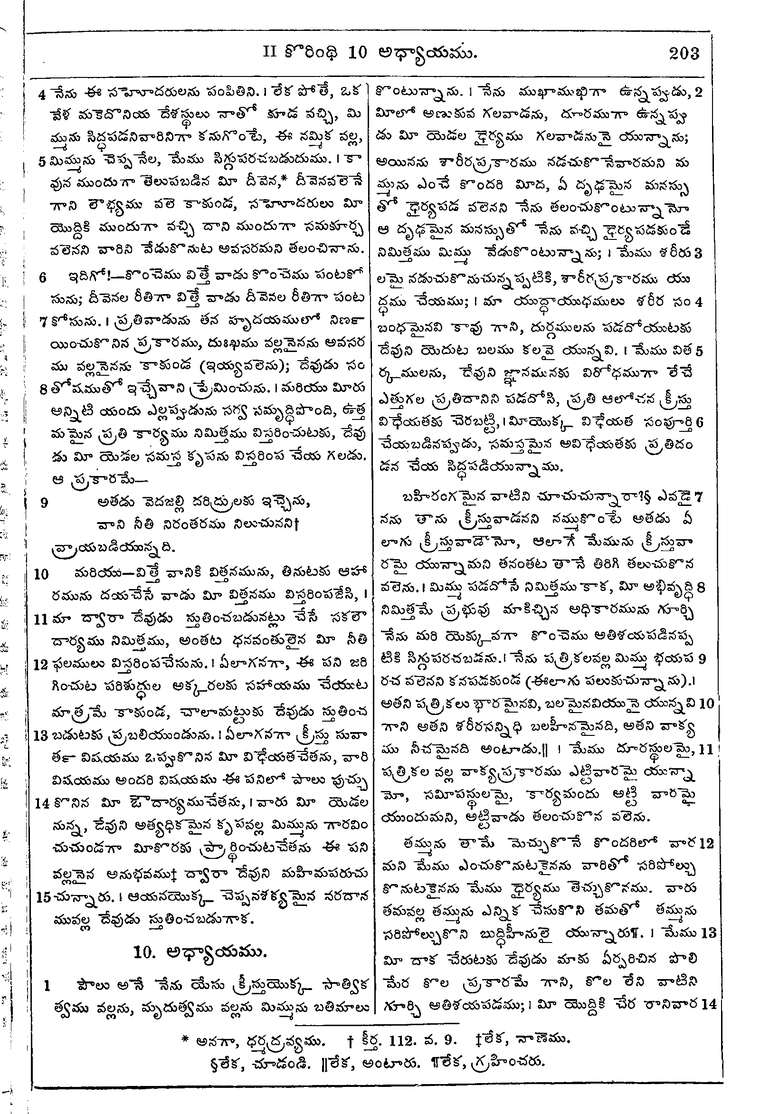 II కొరింథి 10 అధ్యాయము.
203
4 నేను ఈ సహోదరులను పంపితిని. । లేక పోతే, ఒక
వేళ మకెదొనియ దేశస్థులు నాతో కూడ వచ్చి, మి
మ్మును సిద్ధపడనివారినిగా కనుగొంటే, ఈ నమ్మిక వల్ల,
5 మిమ్మును చెప్పనేల, మేము సిగ్గుపరచబడుదుము. । కా
వున ముందుగా తెలుపబడిన మీ దీవెన,* దీవెనవలెనే
గాని లోభ్యము వలె కాకుండ, సహోదరులు మీ
యొద్దికి ముందుగా వచ్చి దాని ముందుగా సమకూర్చ
వలెనని వారిని వేడుకొనుట అవసరమని తలంచినాను.
6 ఇదిగో!—కొంచెము విత్తే వాడు కొంచెము పంటకో
సును; దీవెనల రీతిగా విత్తే వాడు దీవెనల రీతిగా పంట
7 కోసును. । ప్రతివాడును తన హృదయములో నిర్ణ
యించుకొనిన ప్రకారము, దుఃఖము వల్లనైనను అవసర
ము వల్లనైనను కాకుండ (ఇయ్యవలెను); దేవుడు సం
8 తోషముతో ఇచ్చేవాని ప్రేమించును. । మరియు మీరు
అన్నిటి యందు ఎల్లప్పుడును సర్వ సమృద్ధిపొంది, ఉత్త
మమైన ప్రతి కార్యము నిమిత్తము విస్తరించుటకు, దేవు
డు మీ యెడల సమస్త కృపను విస్తరింప చేయ గలడు.
ఆ ప్రకారమే—
9 అతడు వెదజల్లి దరిద్రులకు ఇచ్చెను,
వాని నీతి నిరంతరము నిలుచునని†
వ్రాయబడియున్నది.
10 మరియు—విత్తే వానికి విత్తనమును, తినుటకు ఆహా
రమును దయచేసే వాడు మీ విత్తనము విస్తరింపజేసి, ।
11 మా ద్వారా దేవుడు స్తుతించబడునట్లు చేసే సకలౌ
దార్యము నిమిత్తము, అంతట ధనవంతులైన మీ నీతి
12 ఫలములు విస్తరింపచేసును. । ఏలాగనగా, ఈ పని జరి
గించుట పరిశుద్ధుల అక్కరలకు సహాయము చేయుట
మాత్రమే కాకుండ, చాలామట్టుకు దేవుడు స్తుతించ
13 బడుటకు ప్రబలియుండును. । ఏలాగనగా క్రీస్తు సువా
ర్త విషయము ఒప్పుకొనిన మీ విధేయతచేతను, వారి
విషయము అందరి విషయము ఈ పనిలో పాలు పుచ్చు
14 కొనిన మీ ఔదార్యముచేతను, । వారు మీ యెడల
నున్న, దేవుని అత్యధికమైన కృపవల్ల మిమ్మును గారవిం
చుచుండగా మీకొరకు ప్రార్థించుటచేతను ఈ పని
వల్లనైన అనుభవము‡ ద్వారా దేవుని మహిమపరుచు
15 చున్నారు. । ఆయనయొక్క చెప్పవశక్యమైన నరదాన
మువల్ల దేవుడు స్తుతించబడుగాక.
10. అధ్యాయము.
1 పౌలు అనే నేను యేసు క్రీస్తుయొక్క సాత్విక
త్వము వల్లను, మృదుత్వము వల్లను మిమ్మును బతిమాలు
కొంటున్నాను. । నేను ముఖాముఖిగా ఉన్నప్పుడు, 2
మీలో అణుకువ గలవాడను, దూరముగా ఉన్నప్పు
డు మీ యెడల ధైర్యము గలవాడనునై యున్నాను;
అయినను శారీరప్రకారము నడచుకొనేవారమని మ
మ్మును ఎంచే కొందరి మీద, ఏ దృఢమైన మనస్సు
తో ధైర్యపడ వలెనని నేను తలంచుకొంటున్నానో
ఆ దృఢమైన మనస్సుతో నేను వచ్చి ధైర్యపడకుండే
నిమిత్తము మిమ్ము వేడుకొంటున్నాను; । మేము శరీరు 3
లమై నడుచుకొనుచున్నప్పటికి, శారీరప్రకారము యు
ద్ధము చేయము; । మా యుద్ధాయుధములు శరీర సం 4
బంధమైనవి కావు గాని, దుర్గములను పడదోయుటకు
దేవుని యెదుట బలము కలవై యున్నవి. । మేము విత 5
ర్కములను, దేవుని జ్ఞానమునకు విరోధముగా లేచే
ఎత్తుగల ప్రతిదానిని పడదోసి, ప్రతి ఆలోచన క్రీస్తు
విధేయతకు చెరబట్టి, । మీయొక్క విధేయత సంపూర్తి 6
చేయబడినప్పుడు, సమస్తమైన అవిధేయతకు ప్రతిదం
డన చేయ సిద్ధపడియున్నాము.
బహిరంగమైన వాటిని చూచుచున్నారా?§ ఎవడై 7
నను తాను క్రీస్తువాడనని నమ్ముకొంటే అతడు ఏ
లాగు క్రీస్తువాడౌనో, ఆలాగే మేమును క్రీస్తువా
రమై యున్నామని తనంతట తానే తిరిగి తలుచుకొన
వలెను. । మిమ్ము పడదోసే నిమిత్తము కాక, మీ అభివృద్ధి 8
నిమిత్తమే ప్రభువు మాకిచ్చిన అధికారమును గూర్చి
నేను మరి యెక్కువగా కొంచెము అతిశయపడినప్ప
టికి సిగ్గుపరచబడను. । నేను పత్రికలవల్ల మిమ్ము భయప 9
రచ వలెనని కనపడకుండ (ఈలాగు పలుకుచున్నాను). ।
అతని పత్రికలు భారమైనవి, బలమైనవియునై యున్నవి 10
గాని అతని శరీరసన్నిధి బలహీనమైనది, అతని వాక్య
ము నీచమైనది అంటాడు.‖ । మేము దూరస్థులమై, 11
పత్రికల వల్ల వాక్యప్రకారము ఎట్టివారమై యున్నా
మో, సమీపస్థులమై, కార్యమందు అట్టి వారమై
యుందుమని, అట్టివాడు తలంచుకొన వలెను.
తమ్మును తామే మెచ్చుకొనే కొందరిలో వార 12
మని మేము ఎంచుకొనుటకైనను వారితో సరిపోల్చు
కొనుటకైనను మేము ధైర్యము తెచ్చుకొనము. వారు
తమవల్ల తమ్మును ఎన్నిక చేసుకొని తమతో తమ్మును
సరిపోల్చుకొని బుద్ధిహీనులై యున్నారు¶. । మేము 13
మీ దాక చేరుటకు దేవుడు మాకు ఏర్పరిచిన పొలి
మేర కొల ప్రకారమే గాని, కొల లేని వాటిని
గూర్చి అతిశయపడము; । మీ యొద్దికి చేర రానివార 14
* అనగా, ధర్మద్రవ్యము. † కీర్త. 112. వ. 9. ‡లేక, నాణెము.
§లేక, చూడండి. ‖లేక, అంటారు. ¶లేక, గ్రహించరు.